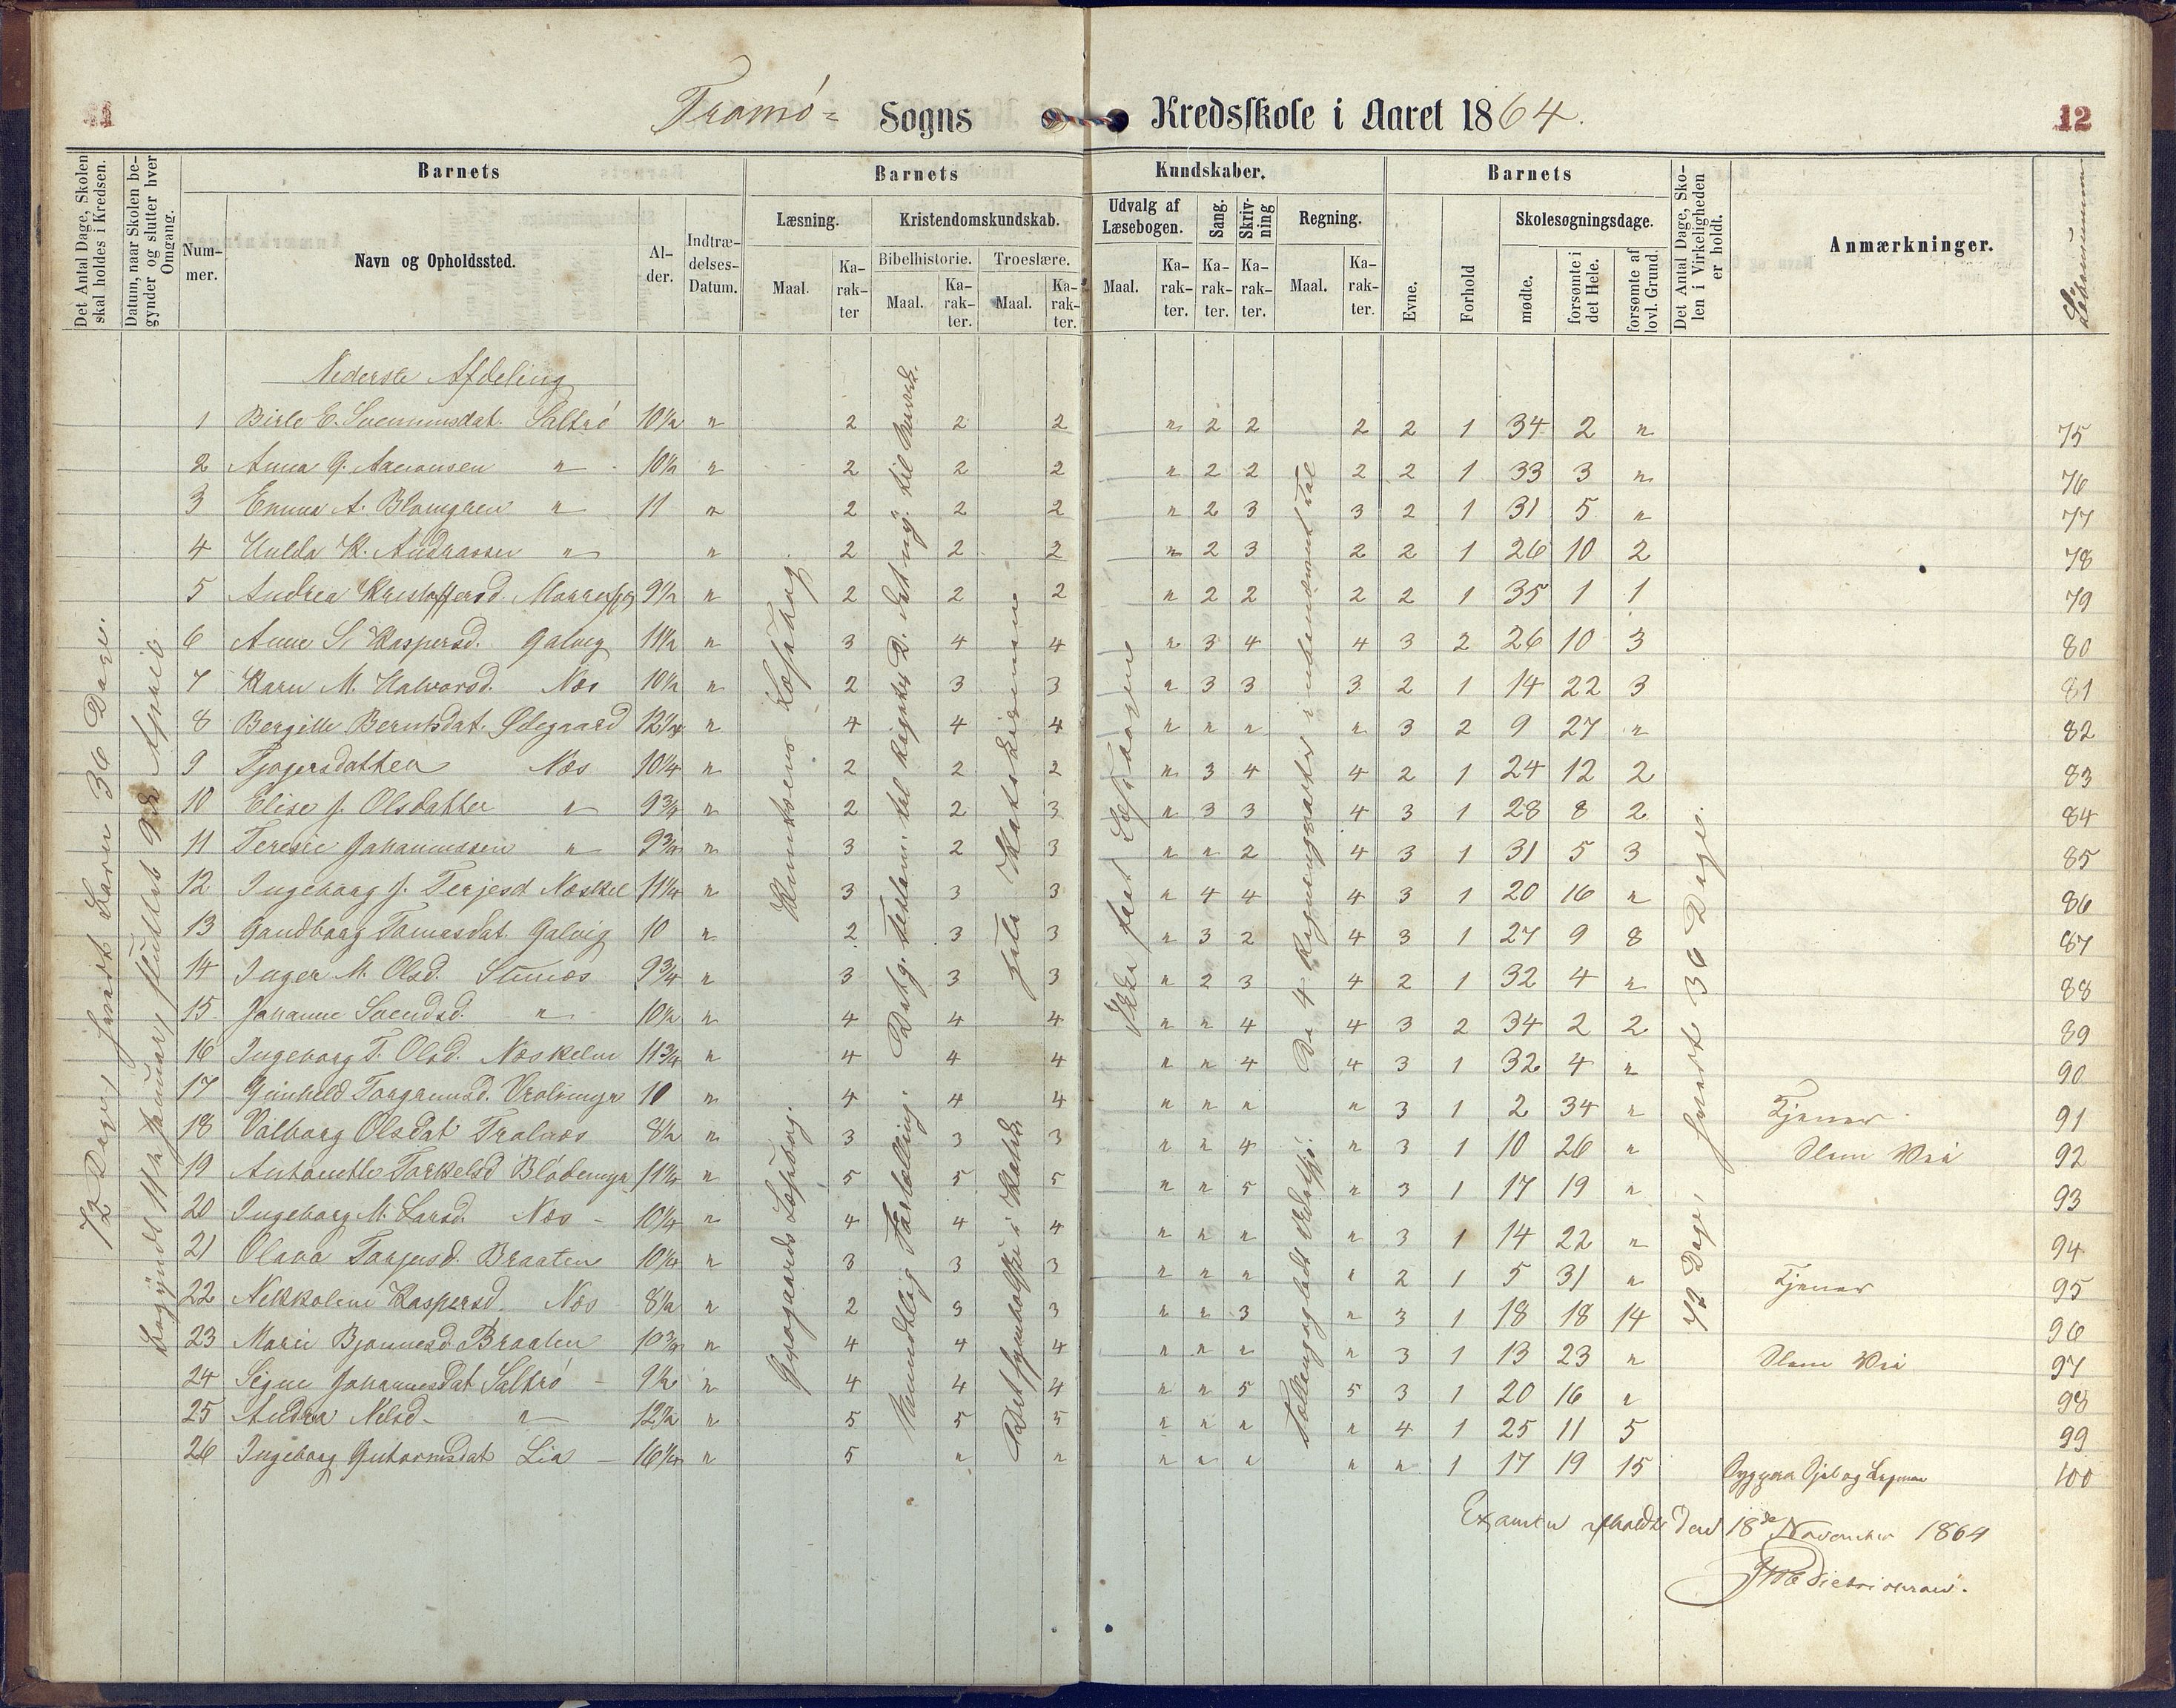 11
Tromö= Sogns Kredsskole i Aaret 1864.
12
Det Antal Dage, Skolen skal holdes i Kredsen.
Datum, naar Skolen begynder og slutter hver Omgang.
Barnets
Nummer.
Navn og Opholdssted.
Alder.
Indtrædelses-Datum.
Barnets Kundskaber.
Læsning.
Maal.
Karakter
Kristendomskundskab.
Bibelhistorie.
Maal.
Karakter.
Troeslære.
Maal.
Karakter.
Udvalg af Læsebogen.
Maal.
Karakter.
Sang.
Karakter.
Skrivning
Karakter.
Regning.
Maal.
Karakter.
Barnets
Evne.
Forhold
Skolesøgningsdage.
mødte.
forsømte i det Hele.
forsømte af lovl. Grund.
Det Antal Dage, Skolen i Virkeligheden er holdt.
Anmærkninger.
Löbenummer
Nederste Afdeling
1 Birle E. Svennumsdat. Saltrö 10½ " 2 2 2 " 2 2 2 2 1 34 2 " 75
2 Anna G. Aanonsen " 10½ " 2 2 2 " 2 2 2 2 1 33 3 " 76
3 Emma A. Blomgren " 11 " 2 2 2 " 2 3 3 2 1 31 5 " 77
4 Hulda K. Andraassen " " 2 2 2 " 2 3 2 2 1 26 10 2 78
5 Andrea Kristoffersd. 9½ " 2 2 2 " 2 2 2 2 1 35 1 1 79
6 Anne S. Kaspersd. Galvig 11½ " 3 4 4 " 3 4 4 3 2 26 10 3 80
7 Karen M. Halvorsd. Næs 10½ " 2 3 3 " 3 3 3 2 1 14 22 3 81
8 Bergitte Berntsdat. Ødegaard 12¼ " 4 4 4 " " " " 3 2 9 27 " 82
9 Tjøgersdatter Næs 10¼ " 2 2 2 " 3 4 4 2 1 24 12 2 83
10 Elise J. Olsdatter " 9¾ " 2 2 3 " 3 3 4 3 1 28 8 2 84
11 Teresie Johannessen " 9¾ " 3 2 3 " " 2 4 3 1 31 5 3 85
12 Ingeborg J. Terjesd. Næskil 11¼ " 3 3 3 " 4 4 4 3 1 20 16 " 86
13 Gundborg Tomasdat. Galvig 10 " 2 3 3 " 3 2 4 3 1 27 9 8 87
14 Inger M. Olsd. 9¾ " 3 3 3 " 2 3 4 2 1 32 4 " 88
15 Johanne Svendsd. " 10½ " 4 4 4 " " 4 4 3 2 34 2 2 89
16 Ingeborg T. Olsd. Næskilen 11¾ " 4 4 4 " " 4 4 3 1 32 4 " 90
17 Gunheld Torgrimsd. 10 " 4 4 4 " " " " 3 1 2 34 " Tjener 91
18 Valborg Olsdat. Tralnæs 8½ " 3 3 3 " " 4 " 3 1 10 26 " Slem Vei 92
19 Antonette Torkelsd. Blödemyr 11½ " 5 5 5 " " 5 " 3 1 17 19 " 93
20 Ingeborg M. Larsd. Næs 10¼ " 4 4 4 " " " " 3 1 14 22 " 94
21 Olava Torjusd. Braaten 10¼ " 3 3 3 " " " " 2 1 5 31 " Tjener 95
22 Nikkoline Kaspersd. Næs 8½ " 2 3 3 " " 3 " 3 1 18 18 14 96
23 Marie Bjønnesd. Braaten 10¾ " 4 4 4 " " " " 3 1 13 23 " Slem Vei 97
24 Signe Johannesdat. Saltrö 9½ " 4 4 4 " " 5 5 3 1 20 16 " 98
25 Andrea Nilsd. " 12½ " 5 5 5 " " " " 4 1 25 11 5 99
26 Ingeborg Gutormsdat. Lia 16¼ " 5 " " " " " " " 1 17 19 15 Syg paa Sjæl og Legeme 100
72 Dage, hvert Barn 36 Dage.
Begyndt 11te Januar, sluttet 9de April.
Grøgaards Læsebog.
Knudsens Læsebog
Mundtlig Fortælling.
Troeslære i Katek.
Ikke havt Læsebogen
De 4 Regningsarter i ubenævnt Tal
72 Dage, hvert 36 Dage.
Examen afholdt den 18de November 1864